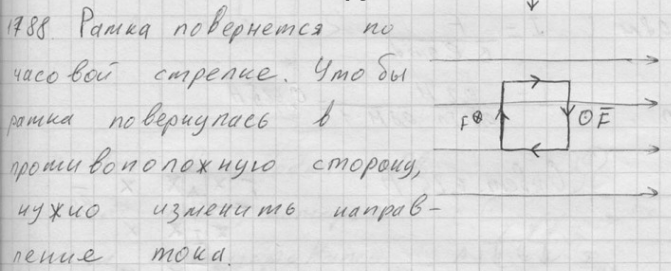 1788. Рамка повернется по
часовой стрелке. Чтобы
рамка повернулась в
противоположную сторону,
нужно изменить направ-
ление тока.
F⊗
⊙ F̅